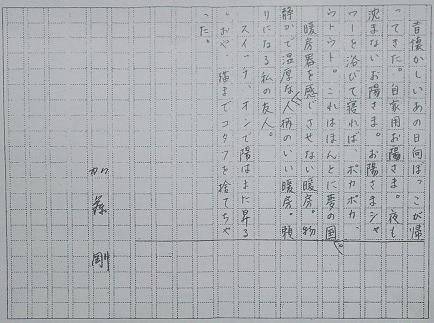 昔懐かしいあの日向ぼっこが帰
ってきた。自家用お陽さま。夜も
沈まないお陽さま。お陽さまシャ
ワーを浴びて寝れば、ポカポカ、
ウトウト。これはほんとに夢の国。
暖房器を感じさせない暖房。物
静かで温厚な人柄のいい暖房。頼
りになる私の友人。
スイッチ、オンで陽はまた昇る
。おや、猫までコタツを捨てちゃ
った。
加藤 剛